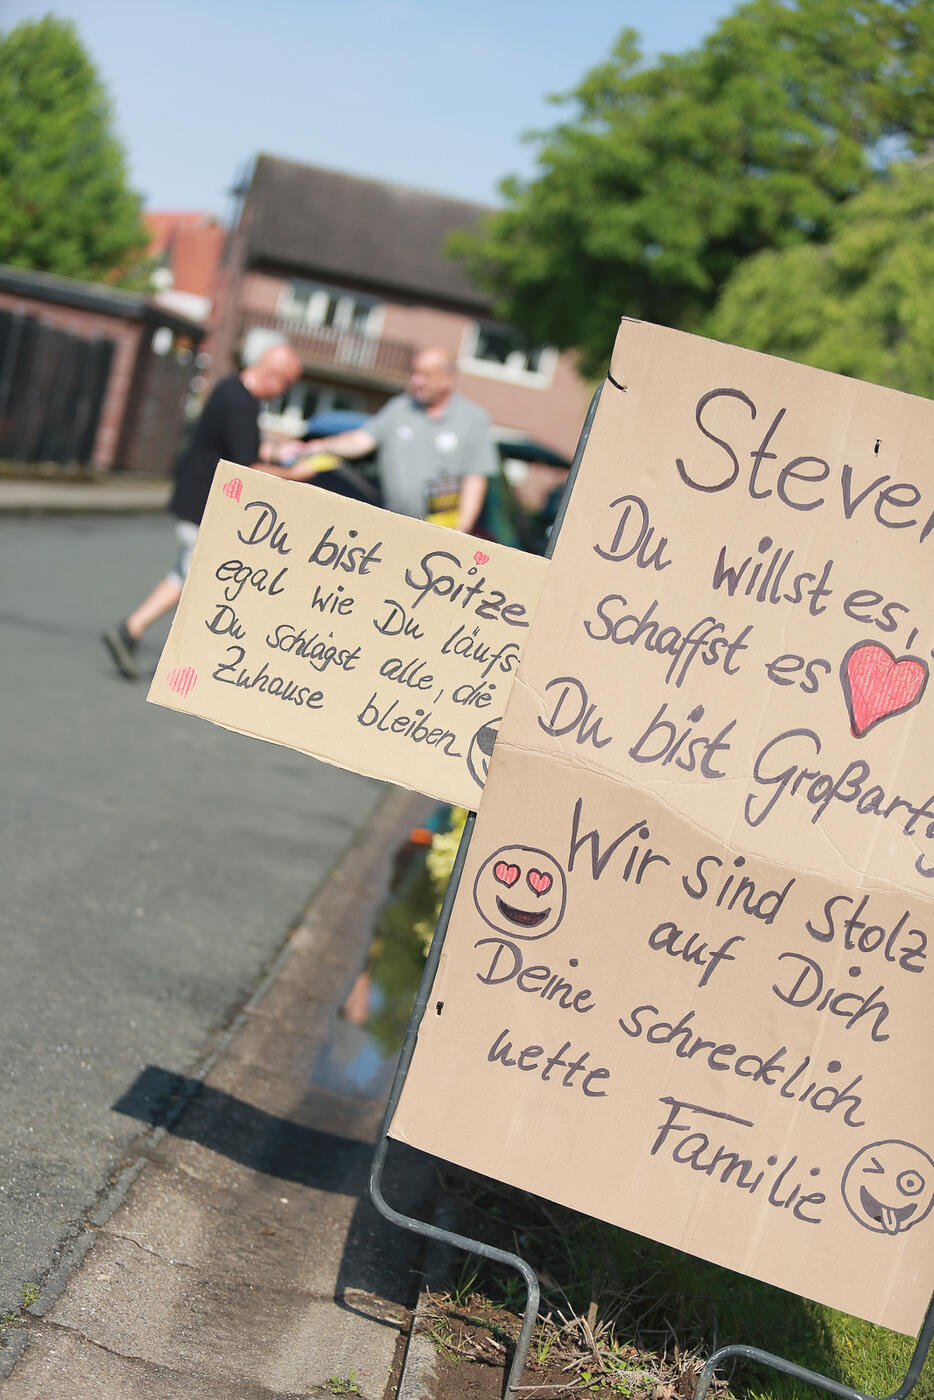 Du bist Spitze
egal wie Du läufs
Du schlägst alle, die
Zuhause bleiben
Steven
Du willst es,
Schaffst es
Du bist Großartig
Wir sind Stolz
auf Dich
Deine schrecklich
nette
Familie